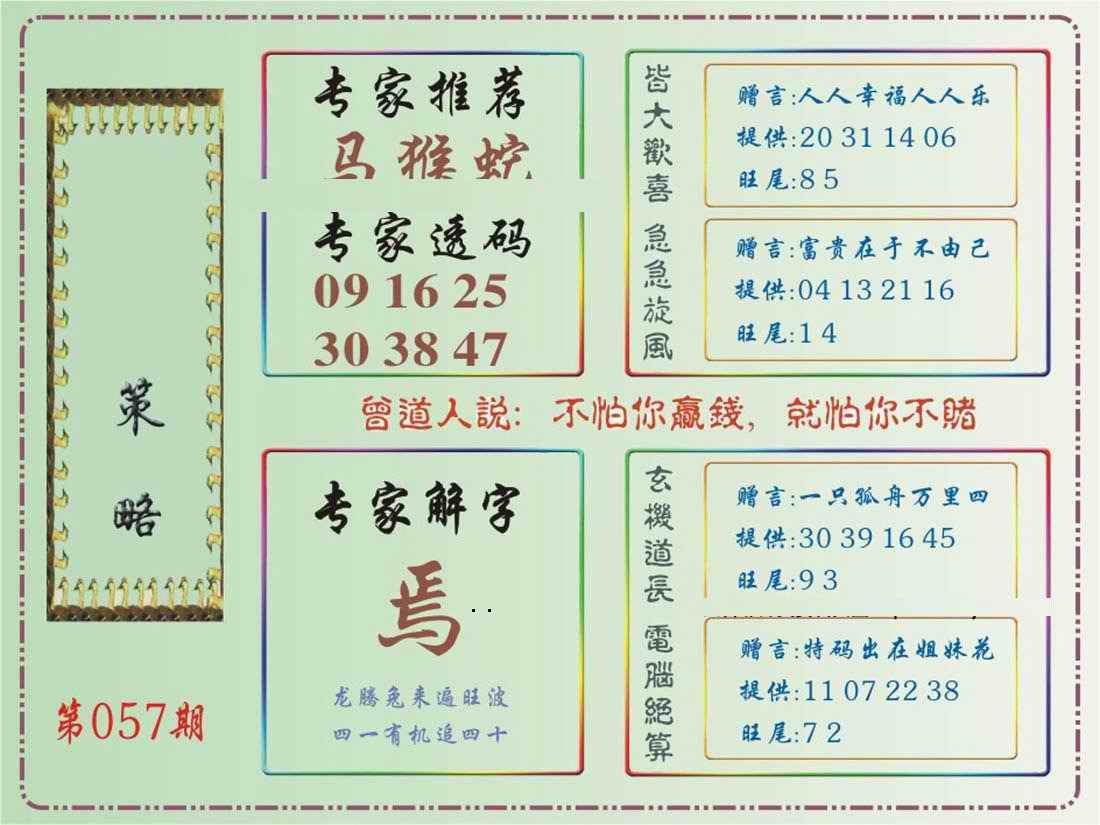 策略
第057期
专家推荐
马猴蛇
专家透码
09 16 25
30 38 47
皆大歡喜
赠言:人人幸福人人乐
提供:20 31 14 06
旺尾:8 5
急急旋風
赠言:富贵在于不由己
提供:04 13 21 16
旺尾:1 4
曾道人説: 不怕你贏錢, 就怕你不賭
专家解字
焉
龙腾兔来遍旺波
四一有机追四十
玄機道長
赠言:一只孤舟万里四
提供:30 39 16 45
旺尾:9 3
電腦絕算
赠言:特码出在姐妹花
提供:11 07 22 38
旺尾:7 2